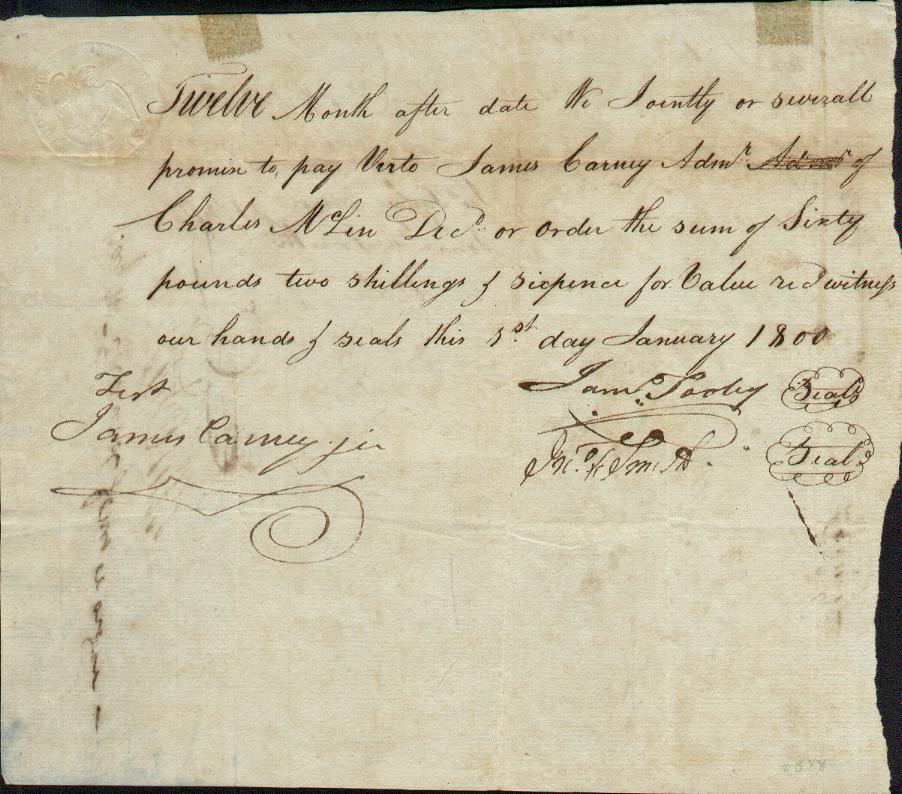 Twelve Month after date We Jointly or severall
promise to pay Unto James Carney Admr. of
Charles McLin Decd. or order the sum of Sixty
pounds two shillings & sixpence for Value recd witness
our hands & seals this 1st. day January 1800
Test
James Carney jur
Jams. Tooley Seal
Jno. W Smith Seal